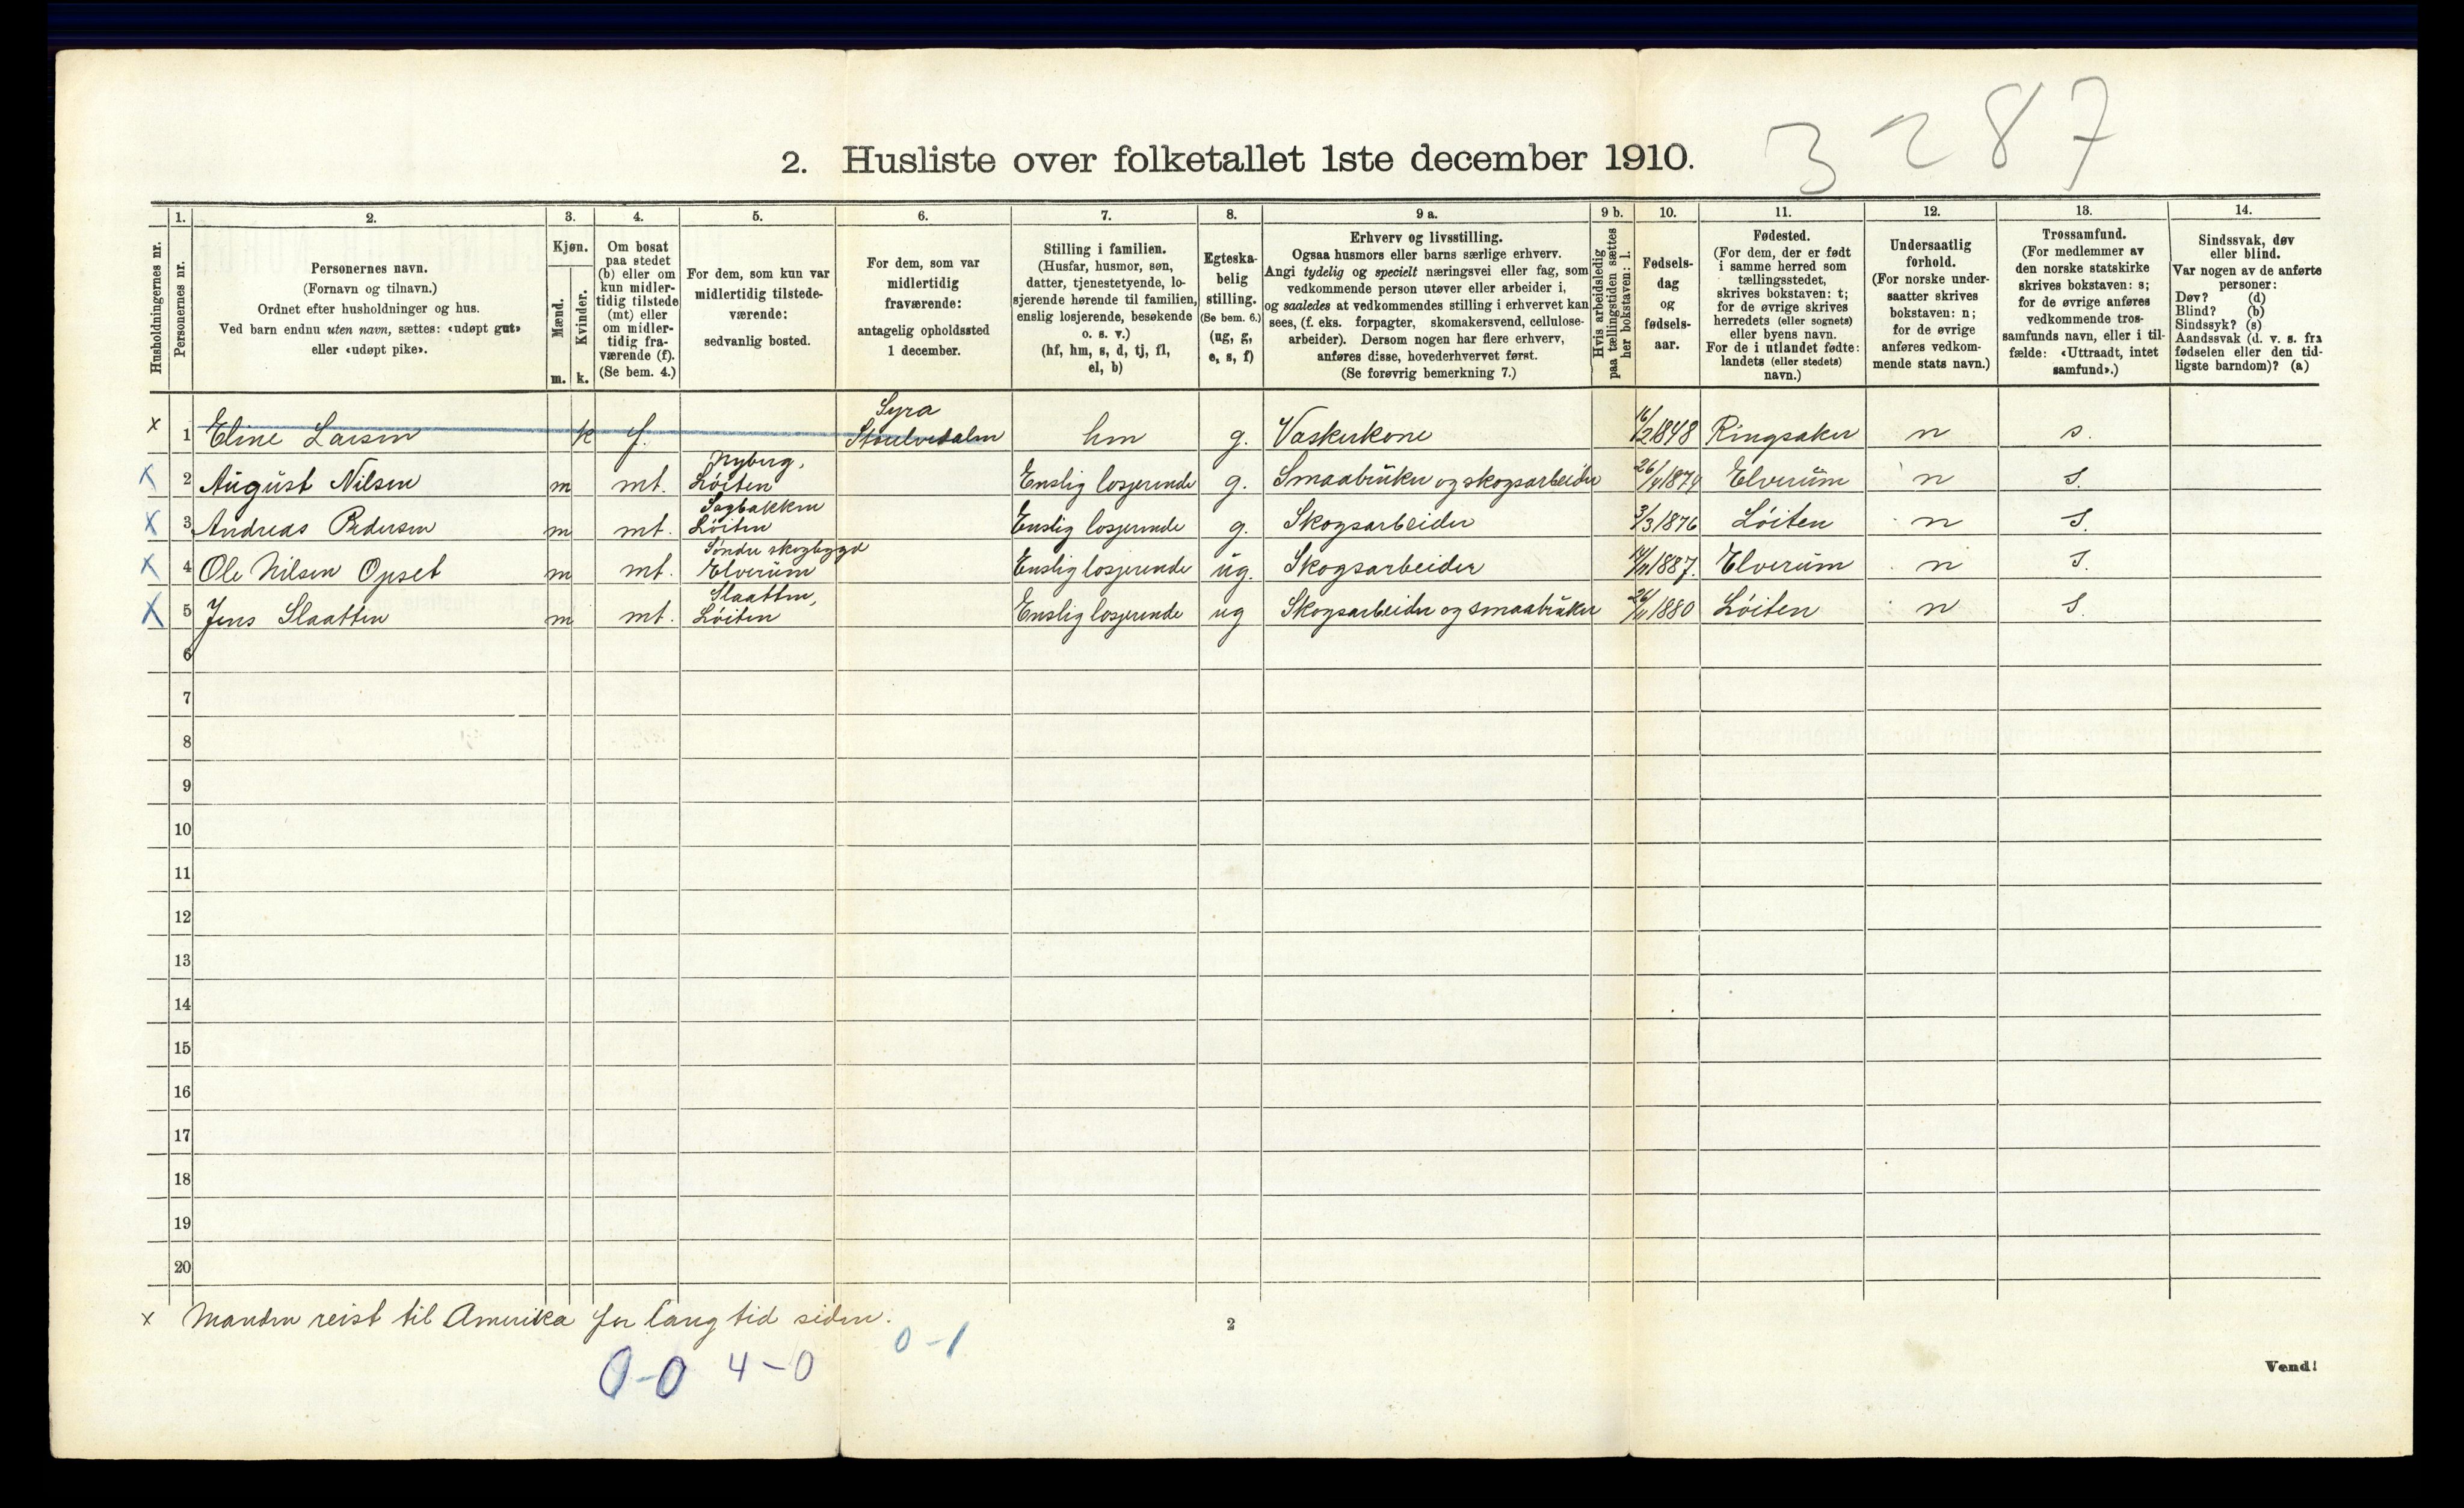 3287
2. Husliste over folketallet 1ste december 1910.
Husholdningernes nr.
1. Personernes nr.
2. Personernes navn.
(Fornavn og tilnavn.)
Ordnet efter husholdninger og hus.
Ved barn endnu uten navn, sættes: «udøpt gut»
eller «udøpt pike».
3. Kjøn.
Mænd. m.
Kvinder. k.
4. Om bosat
paa stedet
(b) eller om
kun midler-
tidig tilstede
(mt) eller
om midler-
tidig fra-
værende (f).
(Se bem. 4.)
5. For dem, som kun var
midlertidig tilstede-
værende:
sedvanlig bosted.
6. For dem, som var
midlertidig
fraværende:
antagelig opholdssted
1 december.
7. Stilling i familien.
(Husfar, husmor, søn,
datter, tjenestetyende, lo-
sjerende hørende til familien,
enslig losjerende, besøkende
o. s. v.)
(hf, hm, s, d, tj, fl,
el, b)
8. Egteska-
belig
stilling.
(Se bem. 6.)
(ug, g,
e, s, f)
9 a. Erhverv og livsstilling.
Ogsaa husmors eller barns særlige erhverv.
Angi tydelig og specielt næringsvei eller fag, som
vedkommende person utøver eller arbeider i,
og saaledes at vedkommendes stilling i erhvervet kan
sees, (f. eks. forpagter, skomakersvend, cellulose-
arbeider). Dersom nogen har flere erhverv,
anføres disse, hovederhvervet først.
(Se forøvrig bemerkning 7.)
9 b. Hvis arbeidsledig
paa tællingstiden sættes
her bokstaven: l.
10. Fødsels-
dag
og
fødsels-
aar.
11. Fødested.
(For dem, der er født
i samme herred som
tællingsstedet,
skrives bokstaven: t;
for de øvrige skrives
herredets (eller sognets)
eller byens navn.
For de i utlandet fødte:
landets (eller stedets)
navn.)
12. Undersaatlig
forhold.
(For norske under-
saatter skrives
bokstaven: n;
for de øvrige
anføres vedkom-
mende stats navn.)
13. Trossamfund.
(For medlemmer av
den norske statskirke
skrives bokstaven: s;
for de øvrige anføres
vedkommende tros-
samfunds navn, eller i til-
fælde: «Uttraadt, intet
samfund».)
14. Sindssvak, døv
eller blind.
Var nogen av de anførte
personer:
Døv? (d)
Blind? (b)
Sindssyk? (s)
Aandssvak (d. v. s. fra
fødselen eller den tid-
ligste barndom)? (a)
Syra
x 1 Eline Larsen k f. hm g. Vaskerkone 16/2 1848 Ringsaker n s.
Nyberg,
x 2 August Nilsen m mt. Løiten Enslig losjerende g. Smaabruker og skogsarbeider 26/ 1874 Elverum n s.
Sagbakken
x 3 Andreas Pedersen m mt. Løiten Enslig losjerende g. Skogsarbeider 3/3 1876 Løiten n s.
Søndre skogbygd
x 4 Ole Nilsen Opset m mt. Elverum Enslig losjerende ug. Skogsarbeider 14/11 1887. Elverum n s.
Slaatten,
x 5 Jens Slaatten m mt. Løiten Enslig losjerende ug Skogsarbeider og smaabruker 26/11 1880 Løiten n s.
6
7
8
9
10
11
12
13
14
15
16
17
18
19
20
x Manden reist til Amerika for lang tid siden.
2
0-1
0-0 4-0
Vend!